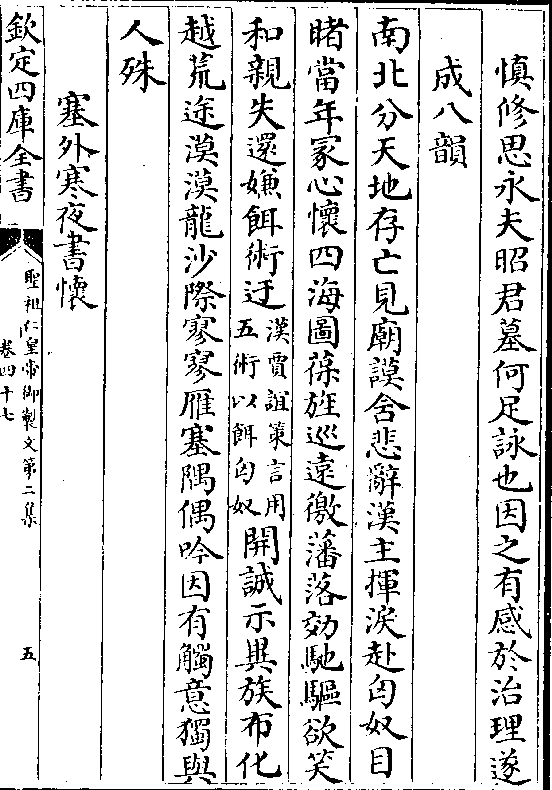 慎修思永夫昭君墓何足詠也因之有感於治理遂
成八韻
南北分天地存亡見廟謨舍悲辭漢主揮淚赴匈奴目
睹當年冡心懷四海圖葆旌巡遠徼藩落効馳驅欲笑
和親失還嫌餌術迂漢賈誼策言用五術以餌匈奴開誠示異族布化
越荒途漠漠龍沙際寥寥雁塞隅偶吟因有觸意獨與
人殊
塞外寒夜書懷
欽定四庫全書
聖祖仁皇帝御製文第二集
卷四十七
五